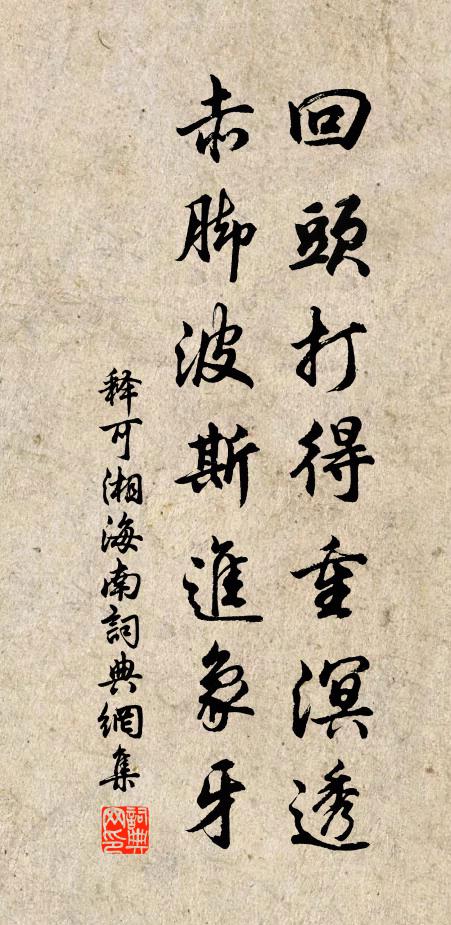 回頭打得重溟透
赤脚波斯進象牙
释可湘海南詞典網集
詞典網印